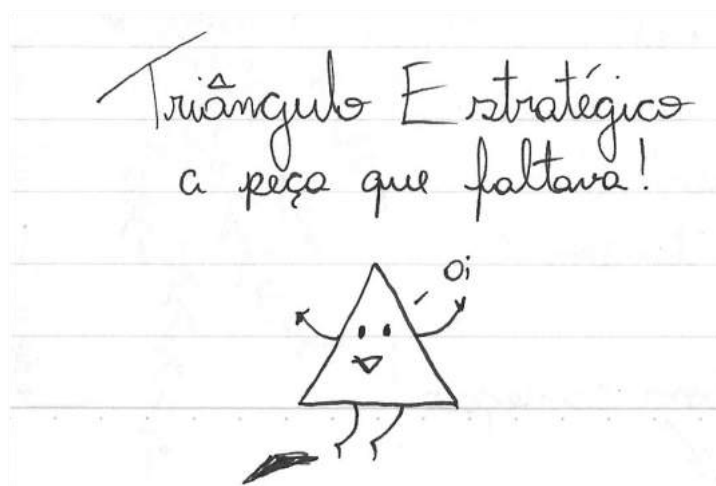 Triângulo Estratégico
a peça que faltava!
Oi